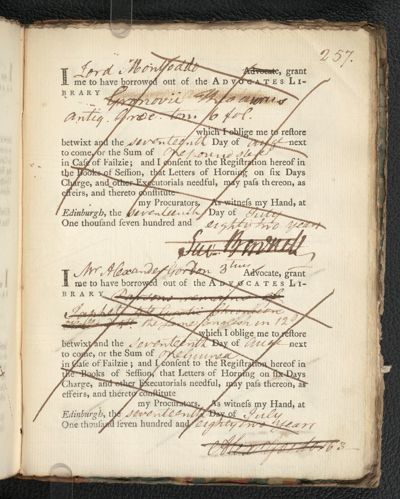 257.
I Lord Monboddo Advocate, grant
me to have borrowed out of the ADVOCATES LI-
BRARY Gronovii Thesaurus
Antiq. Græc. tom. 6 fol.
which I oblige me to reſtore
betwixt and the seventeenth Day of next
to come, or the Sum of
in Caſe of Failzie; and I conſent to the Regiſtration hereof in
the Books of Seſſion, that Letters of Horning on ſix Days
Charge, and other Executorials needful, may paſs thereon, as
effeirs, and thereto conſtitute
my Procurators. As witneſs my Hand, at
Edinburgh, the seventeenth Day of July
One thouſand ſeven hundred and eighty two years
I Mr Alexander Gordon 3tius Advocate, grant
me to have borrowed out of the ADVOCATES LI-
BRARY Parsons remains of
Japhet
the same English in 12o
which I oblige me to reſtore
betwixt and the seventeenth Day of next
to come, or the Sum of one Guinea
in Caſe of Failzie; and I conſent to the Regiſtration hereof in
the Books of Seſſion, that Letters of Horning on ſix Days
Charge, and other Executorials needful, may paſs thereon, as
effeirs, and thereto conſtitute
my Procurators. As witneſs my Hand, at
Edinburgh, the seventeenth Day of July
One thouſand ſeven hundred and eighty two years